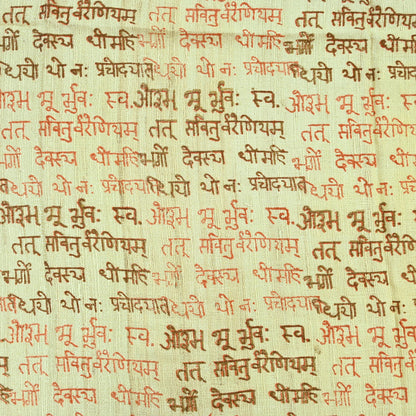 तत् सवितुर्वरेणियम् तत् सवितुर्वरेणियम्
भर्गो देवस्य धीमहि भर्गो देवस्य धीमहि भर्गो देवस्य
धियो यो नः प्रचोदयात् धियो यो नः प्रचोदयात्
भू र्भुवः स्व. ओ३म् भू र्भुवः स्व. ओ३म् भू र्भुवः
तत् सवितुर्वरेणियम् तत् सवितुर्वरेणियम् तत् सवितु
भर्गो देवस्य धीमहि भर्गो देवस्य धीमहि भर्गो देवस्य
धियो यो नः प्रचोदयात् धियो यो नः प्रचोदयात् धियो यो नः
ओ३म् भू र्भुवः स्व. ओ३म् भू र्भुवः स्व. ओ३म् भू
तत् सवितुर्वरेणियम् तत् सवितुर्वरेणियम् तत् सवितुर्व
भर्गो देवस्य धीमहि भर्गो देवस्य धीमहि भर्गो देवस्य
धियो यो नः प्रचोदयात् धियो यो नः प्रचोदयात् धियो यो नः
ओ३म् भू र्भुवः स्व. ओ३म् भू र्भुवः स्व. ओ३म् भू र्भुवः
तत् सवितुर्वरेणियम् तत् सवितुर्वरेणियम् तत् सवितु
भर्गो देवस्य धीमहि भर्गो देवस्य धीमहि भर्गो देवस्य